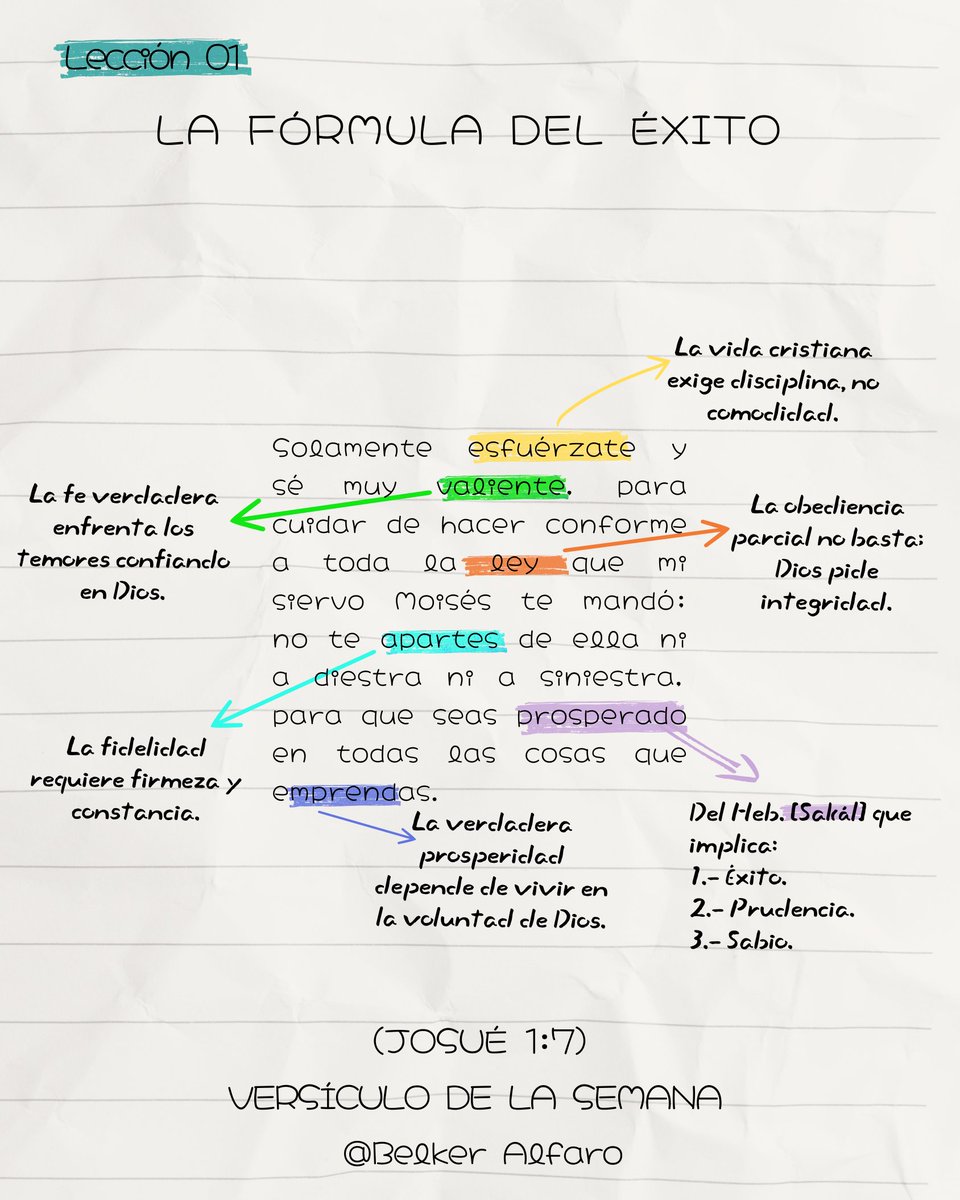 Lección 01
LA FÓRMULA DEL ÉXITO
La vida cristiana
exige disciplina, no
comodidad.
Solamente esfuérzate y
sé muy valiente. para
cuidar de hacer conforme
a toda la ley que mi
siervo Moisés te mandó:
no te apartes de ella ni
a diestra ni a siniestra.
para que seas prosperado
en todas las cosas que
emprendas.
La fe verdadera
enfrenta los
temores confiando
en Dios.
La obediencia
parcial no basta:
Dios pide
integridad.
La fidelidad
requiere firmeza y
constancia.
La verdadera
prosperidad
depende de vivir en
la voluntad de Dios.
Del Heb. [Sakál] que
implica:
1.- Éxito.
2.- Prudencia.
3.- Sabio.
(JOSUÉ 1:7)
VERSÍCULO DE LA SEMANA
@Belker Alfaro